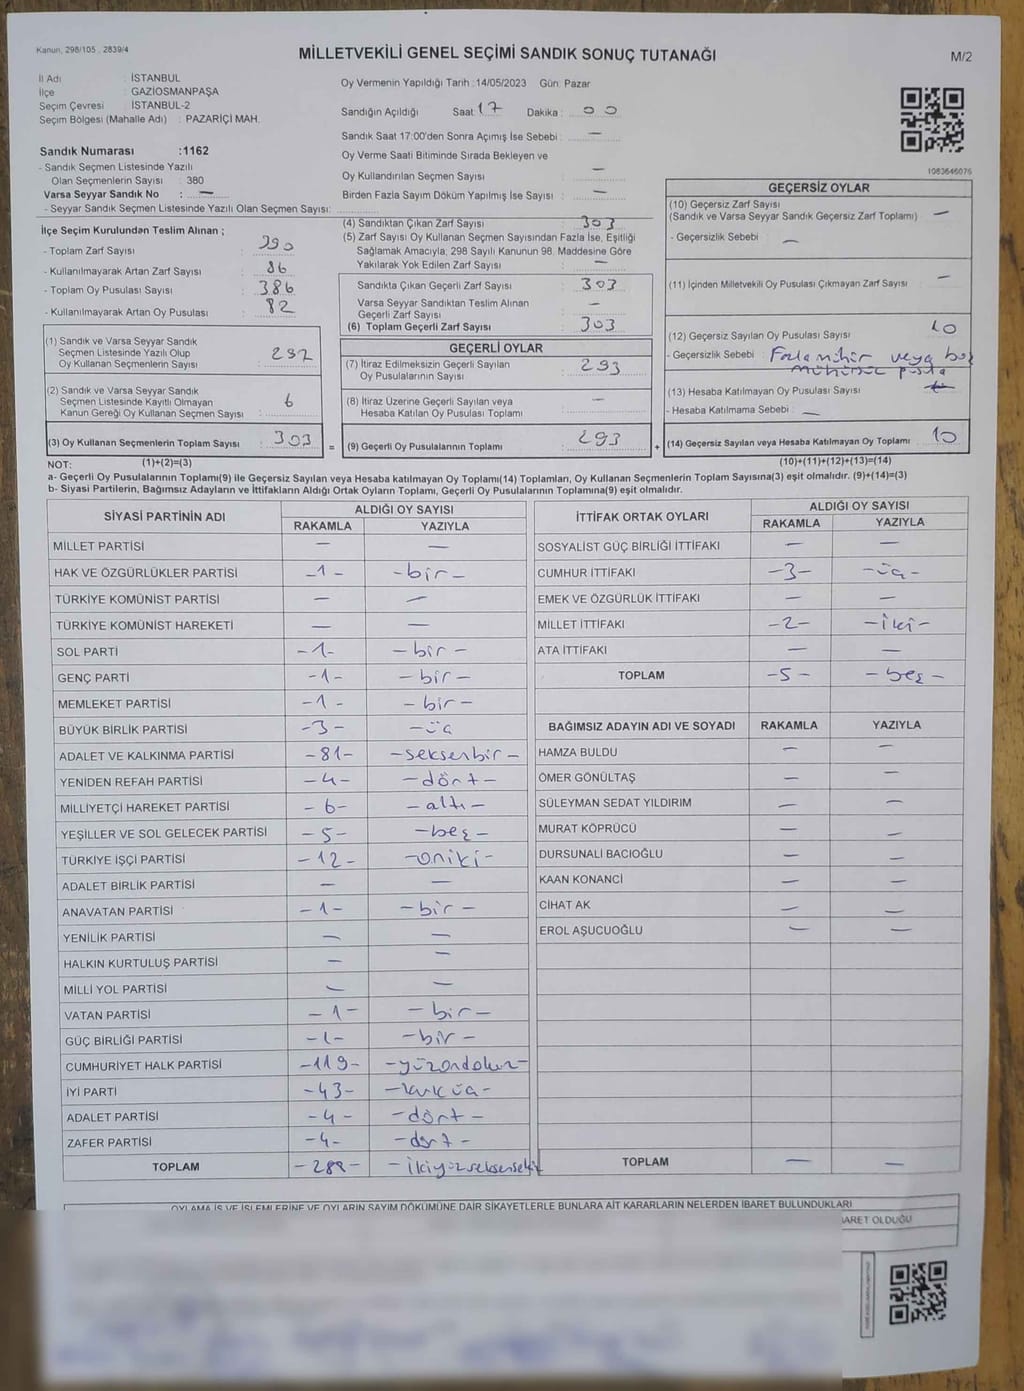 Kanun, 298/105 , 2839/4
MİLLETVEKİLİ GENEL SEÇİMİ SANDIK SONUÇ TUTANAĞI
M/2
İl Adı : İSTANBUL
İlçe : GAZİOSMANPAŞA
Seçim Çevresi : İSTANBUL-2
Seçim Bölgesi (Mahalle Adı) : PAZARİÇİ MAH.
Sandık Numarası :1162
- Sandık Seçmen Listesinde Yazılı
Olan Seçmenlerin Sayısı : 380
Varsa Seyyar Sandık No : —
- Seyyar Sandık Seçmen Listesinde Yazılı Olan Seçmen Sayısı:
Oy Vermenin Yapıldığı Tarih :14/05/2023 Gün: Pazar
Sandığın Açıldığı Saat: 17 Dakika : 00
Sandık Saat 17:00'den Sonra Açımış İse Sebebi : —
Oy Verme Saati Bitiminde Sırada Bekleyen ve
Oy Kullandırılan Seçmen Sayısı : —
Birden Fazla Sayım Döküm Yapılmış İse Sayısı : —
1083646076
İlçe Seçim Kurulundan Teslim Alınan ;
- Toplam Zarf Sayısı : 390
- Kullanılmayarak Artan Zarf Sayısı : 86
- Toplam Oy Pusulası Sayısı : 386
- Kullanılmayarak Artan Oy Pusulası : 82
(1) Sandık ve Varsa Seyyar Sandık
Seçmen Listesinde Yazılı Olup
Oy Kullanan Seçmenlerin Sayısı : 297
(2) Sandık ve Varsa Seyyar Sandık
Seçmen Listesinde Kayıtlı Olmayan
Kanun Gereği Oy Kullanan Seçmen Sayısı : 6
(3) Oy Kullanan Seçmenlerin Toplam Sayısı : 303
(4) Sandıktan Çıkan Zarf Sayısı : 303
(5) Zarf Sayısı Oy Kullanan Seçmen Sayısından Fazla İse, Eşitliği
Sağlamak Amacıyla, 298 Sayılı Kanunun 98. Maddesine Göre
Yakılarak Yok Edilen Zarf Sayısı : —
Sandıkta Çıkan Geçerli Zarf Sayısı : 303
Varsa Seyyar Sandıktan Teslim Alınan
Geçerli Zarf Sayısı : —
(6) Toplam Geçerli Zarf Sayısı : 303
GEÇERLİ OYLAR
(7) İtiraz Edilmeksizin Geçerli Sayılan
Oy Pusulalarının Sayısı : 293
(8) İtiraz Üzerine Geçerli Sayılan veya
Hesaba Katılan Oy Pusulası Toplamı : —
= (9) Geçerli Oy Pusulalarının Toplamı : 293
GEÇERSİZ OYLAR
(10) Geçersiz Zarf Sayısı
(Sandık ve Varsa Seyyar Sandık Geçersiz Zarf Toplamı) : —
- Geçersizlik Sebebi : —
(11) İçinden Milletvekili Oy Pusulası Çıkmayan Zarf Sayısı : —
(12) Geçersiz Sayılan Oy Pusulası Sayısı : 10
- Geçersizlik Sebebi : Fazla mühür veya boş
mühürsüz pusla
(13) Hesaba Katılmayan Oy Pusulası Sayısı :
- Hesaba Katılmama Sebebi : —
+ (14) Geçersiz Sayılan veya Hesaba Katılmayan Oy Toplamı : 10
NOT: (1)+(2)=(3) (10)+(11)+(12)+(13)=(14)
a- Geçerli Oy Pusulalarının Toplamı(9) ile Geçersiz Sayılan veya Hesaba katılmayan Oy Toplamı(14) Toplamları, Oy Kullanan Seçmenlerin Toplam Sayısına(3) eşit olmalıdır. (9)+(14)=(3)
b- Siyasi Partilerin, Bağımsız Adayların ve İttifakların Aldığı Ortak Oyların Toplamı, Geçerli Oy Pusulalarının Toplamına(9) eşit olmalıdır.
SİYASİ PARTİNİN ADI ALDIĞI OY SAYISI
RAKAMLA YAZIYLA
MİLLET PARTİSİ — —
HAK VE ÖZGÜRLÜKLER PARTİSİ -1- -bir-
TÜRKİYE KOMÜNİST PARTİSİ — —
TÜRKİYE KOMÜNİST HAREKETİ — —
SOL PARTİ -1- -bir-
GENÇ PARTİ -1- -bir-
MEMLEKET PARTİSİ -1- -bir-
BÜYÜK BİRLİK PARTİSİ -3- -üç
ADALET VE KALKINMA PARTİSİ -81- -seksenbir-
YENİDEN REFAH PARTİSİ -4- -dört-
MİLLİYETÇİ HAREKET PARTİSİ -6- -altı-
YEŞİLLER VE SOL GELECEK PARTİSİ -5- -beş-
TÜRKİYE İŞÇİ PARTİSİ -12- -oniki-
ADALET BİRLİK PARTİSİ — —
ANAVATAN PARTİSİ -1- -bir-
YENİLİK PARTİSİ — —
HALKIN KURTULUŞ PARTİSİ — —
MİLLİ YOL PARTİSİ — —
VATAN PARTİSİ -1- -bir-
GÜÇ BİRLİĞİ PARTİSİ -1- -bir-
CUMHURİYET HALK PARTİSİ -119- -yüzondokuz-
İYİ PARTİ -43- -kırküç-
ADALET PARTİSİ -4- -dört-
ZAFER PARTİSİ -4- -dört-
TOPLAM -288- -ikiyüzseksensekiz
İTTİFAK ORTAK OYLARI ALDIĞI OY SAYISI
RAKAMLA YAZIYLA
SOSYALİST GÜÇ BİRLİĞİ İTTİFAKI — —
CUMHUR İTTİFAKI -3- -üç-
EMEK VE ÖZGÜRLÜK İTTİFAKI — —
MİLLET İTTİFAKI -2- -iki-
ATA İTTİFAKI — —
TOPLAM -5- -beş-
BAĞIMSIZ ADAYIN ADI VE SOYADI RAKAMLA YAZIYLA
HAMZA BULDU — —
ÖMER GÖNÜLTAŞ — —
SÜLEYMAN SEDAT YILDIRIM — —
MURAT KÖPRÜCÜ — —
DURSUNALİ BACIOĞLU — —
KAAN KONANCİ — —
CİHAT AK — —
EROL AŞUCUOĞLU — —
TOPLAM — —
OYLAMA İŞ VE İŞLEMLERİNE VE OYLARIN SAYIM DÖKÜMÜNE DAİR ŞİKAYETLERLE BUNLARA AİT KARARLARIN NELERDEN İBARET BULUNDUKLARI
BARET OLDUĞU